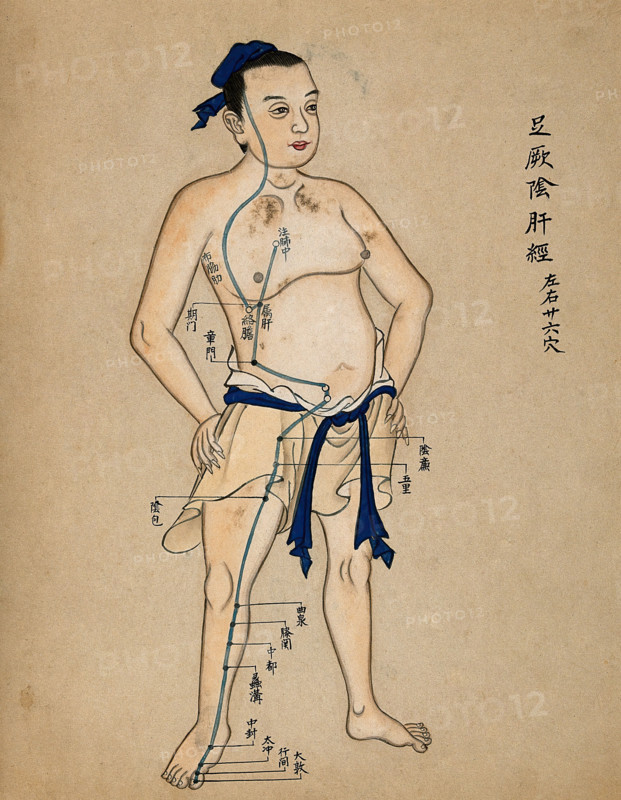 足厥陰肝經
左右廿六穴
注肺中
布脇肋
属肝
絡膽
期门
章門
陰廉
五里
陰包
曲泉
膝関
中都
蠡溝
中封
太冲
行间
大敦
PHOTO12